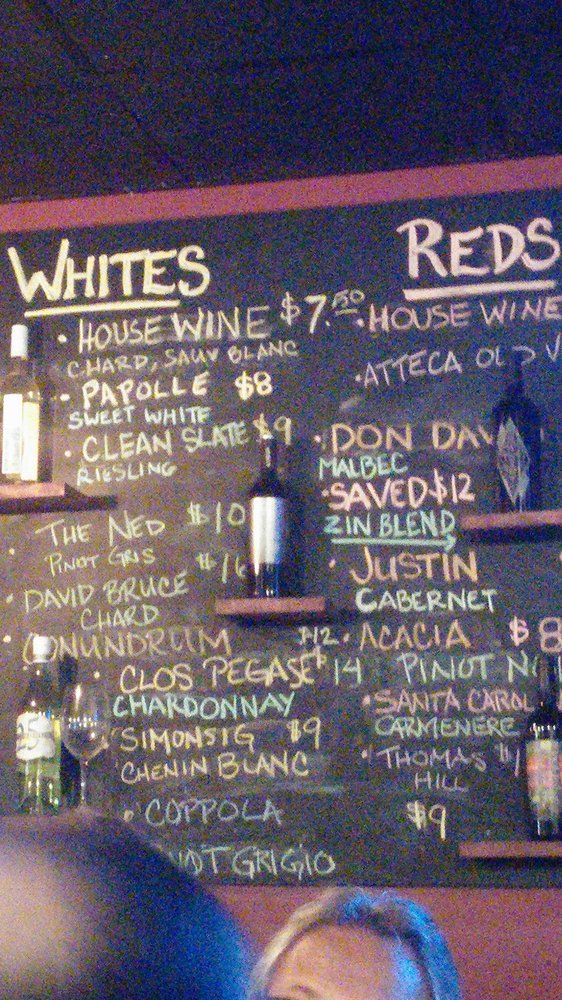 WHITES
• HOUSE WINE $7.50
CHARD, SAUV BLANC
• PAPOLLE $8
SWEET WHITE
• CLEAN SLATE $9
RIESLING
• THE NED $10
PINOT GRIS
• DAVID BRUCE $16
CHARD
• CONUNDRUM $12
• CLOS PEGASE $14
CHARDONNAY
• SIMONSIG $9
CHENIN BLANC
• COPPOLA $9
NOT GRIGIO
REDS
• HOUSE WINE
• ATTECA OLD V
• DON DAV
MALBEC
• SAVED $12
ZIN BLEND
• JUSTIN
CABERNET
• ACACIA $8
PINOT NO
• SANTA CAROL
CARMENERE
• THOMAS $1
HILL